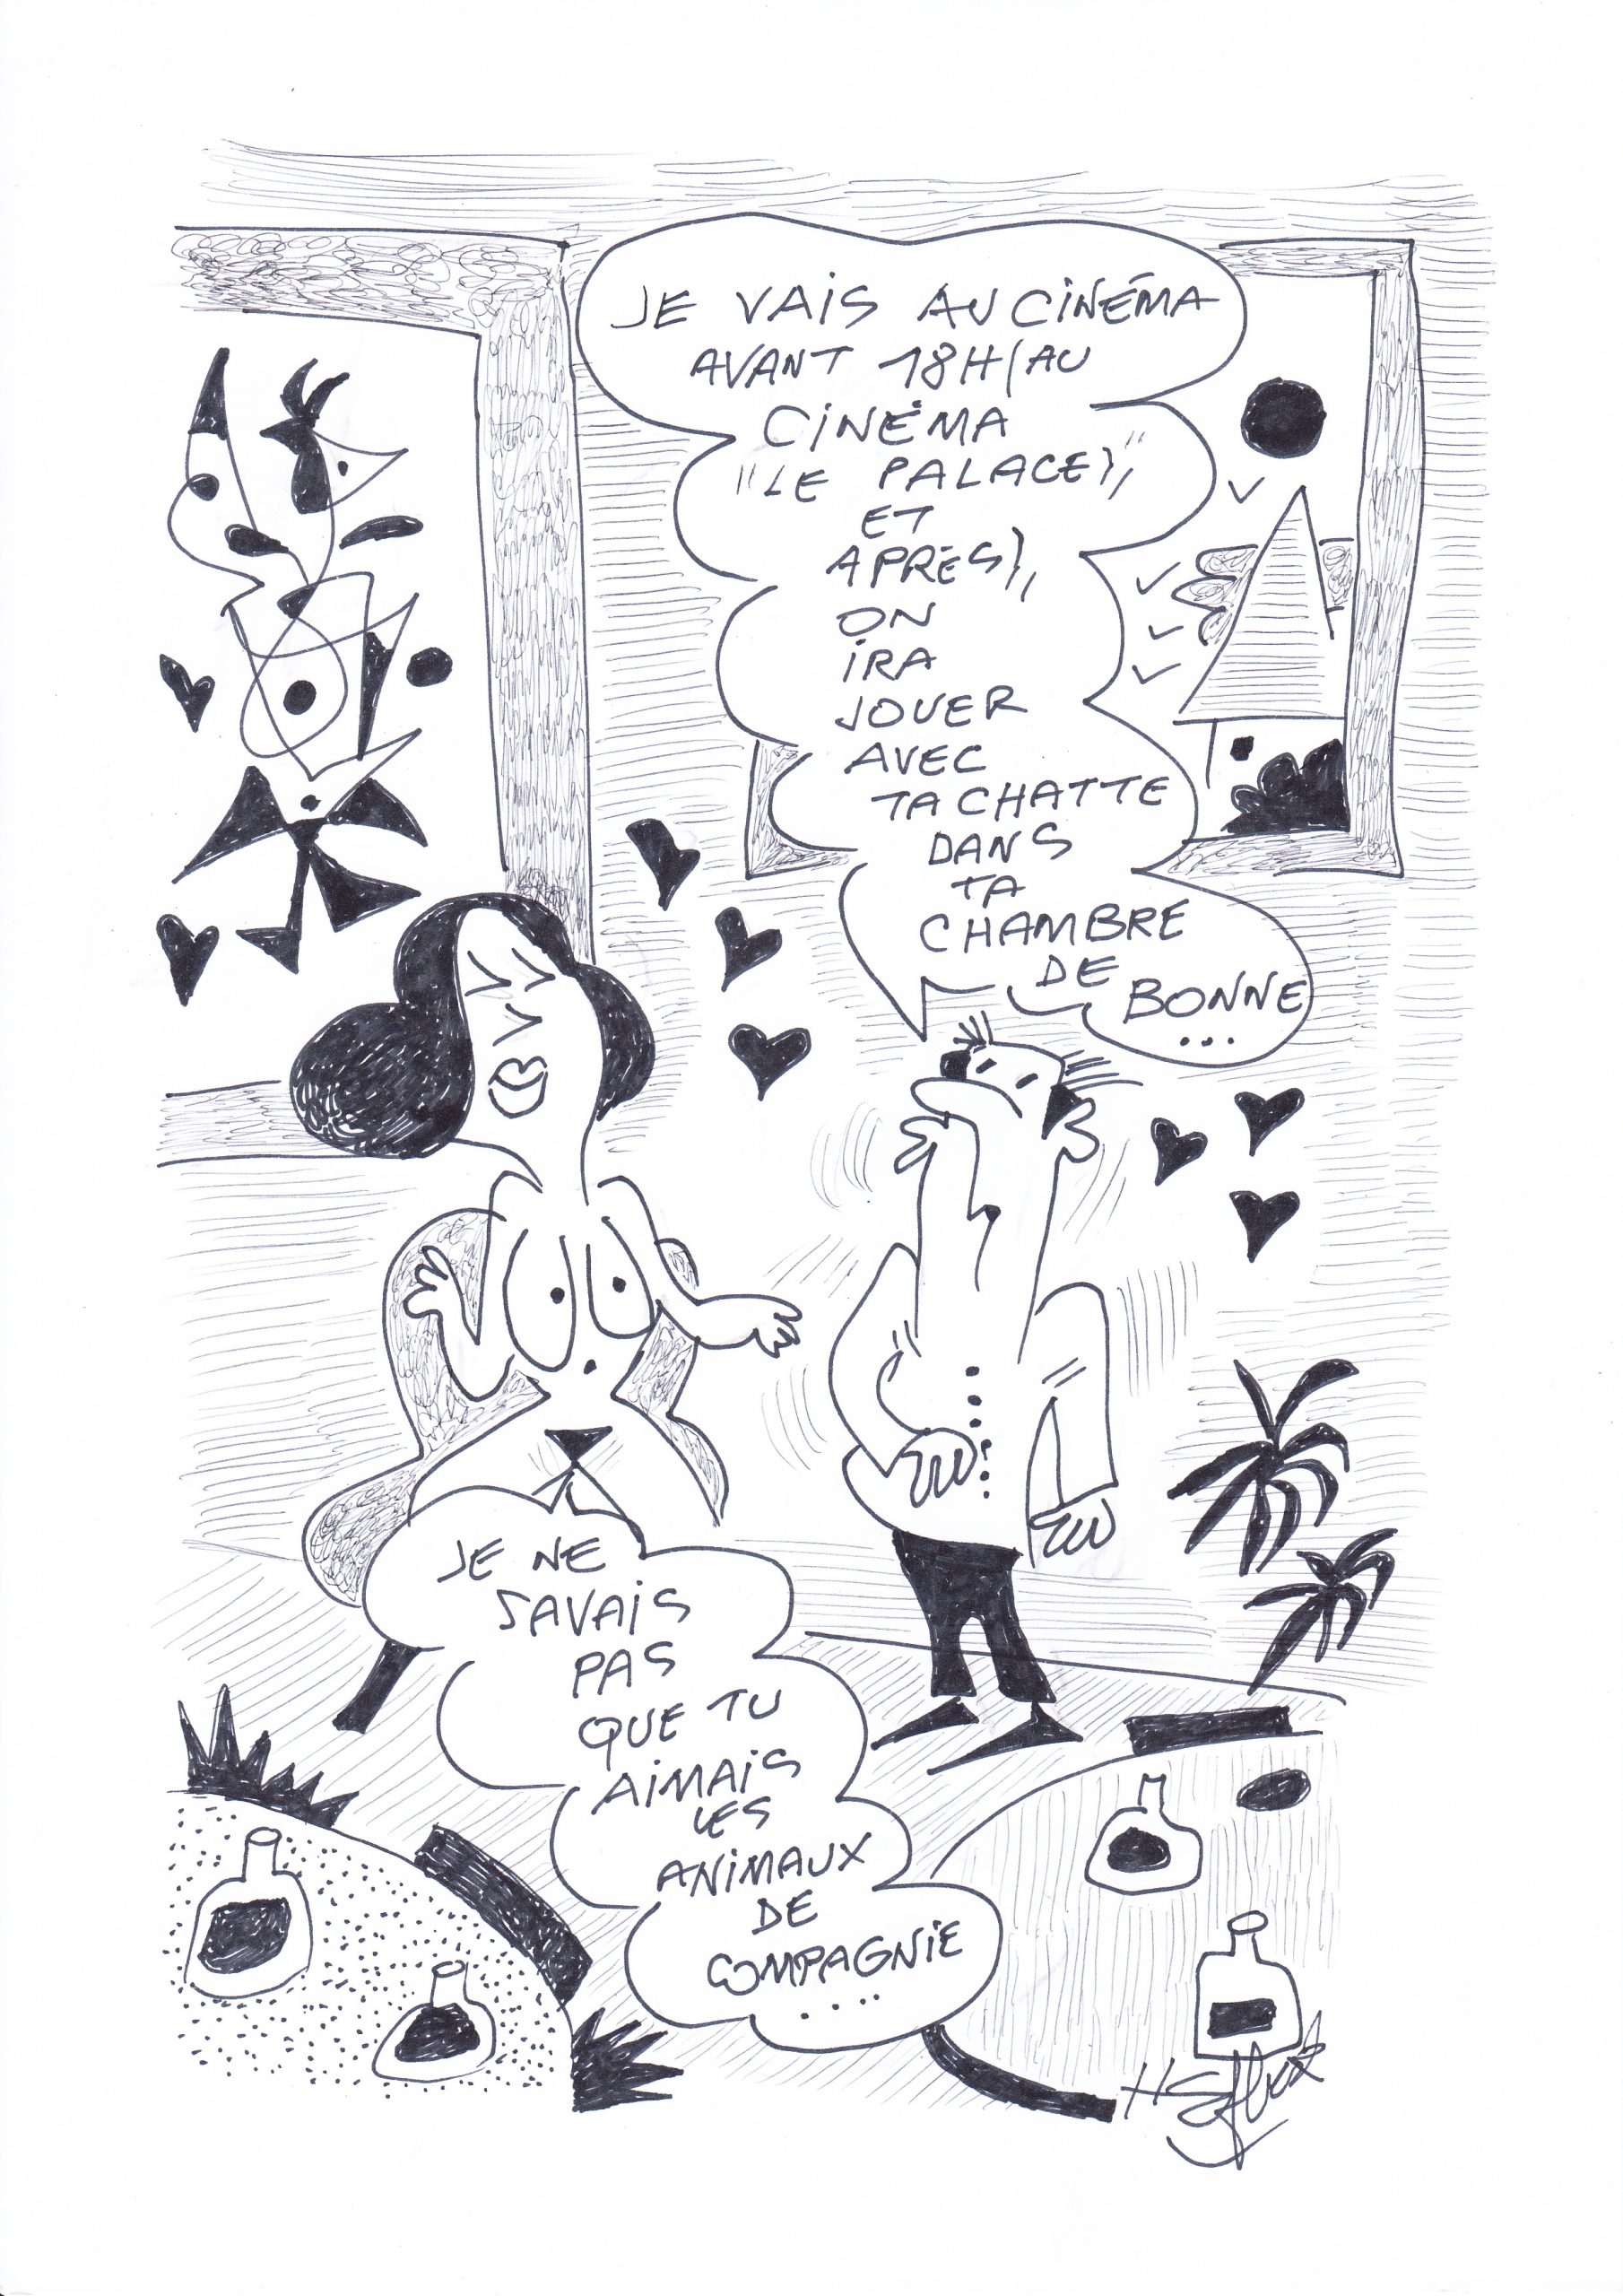 JE VAIS AU CINÉMA
AVANT 18H/AU
CINÉMA
"LE PALACE},"
ET
APRÈS},
ON
IRA
JOUER
AVEC
TA CHATTE
DANS
TA
CHAMBRE
DE
BONNE
...
JE NE
SAVAIS
PAS
QUE TU
AIMAIS
LES
ANIMAUX
DE
COMPAGNIE
....